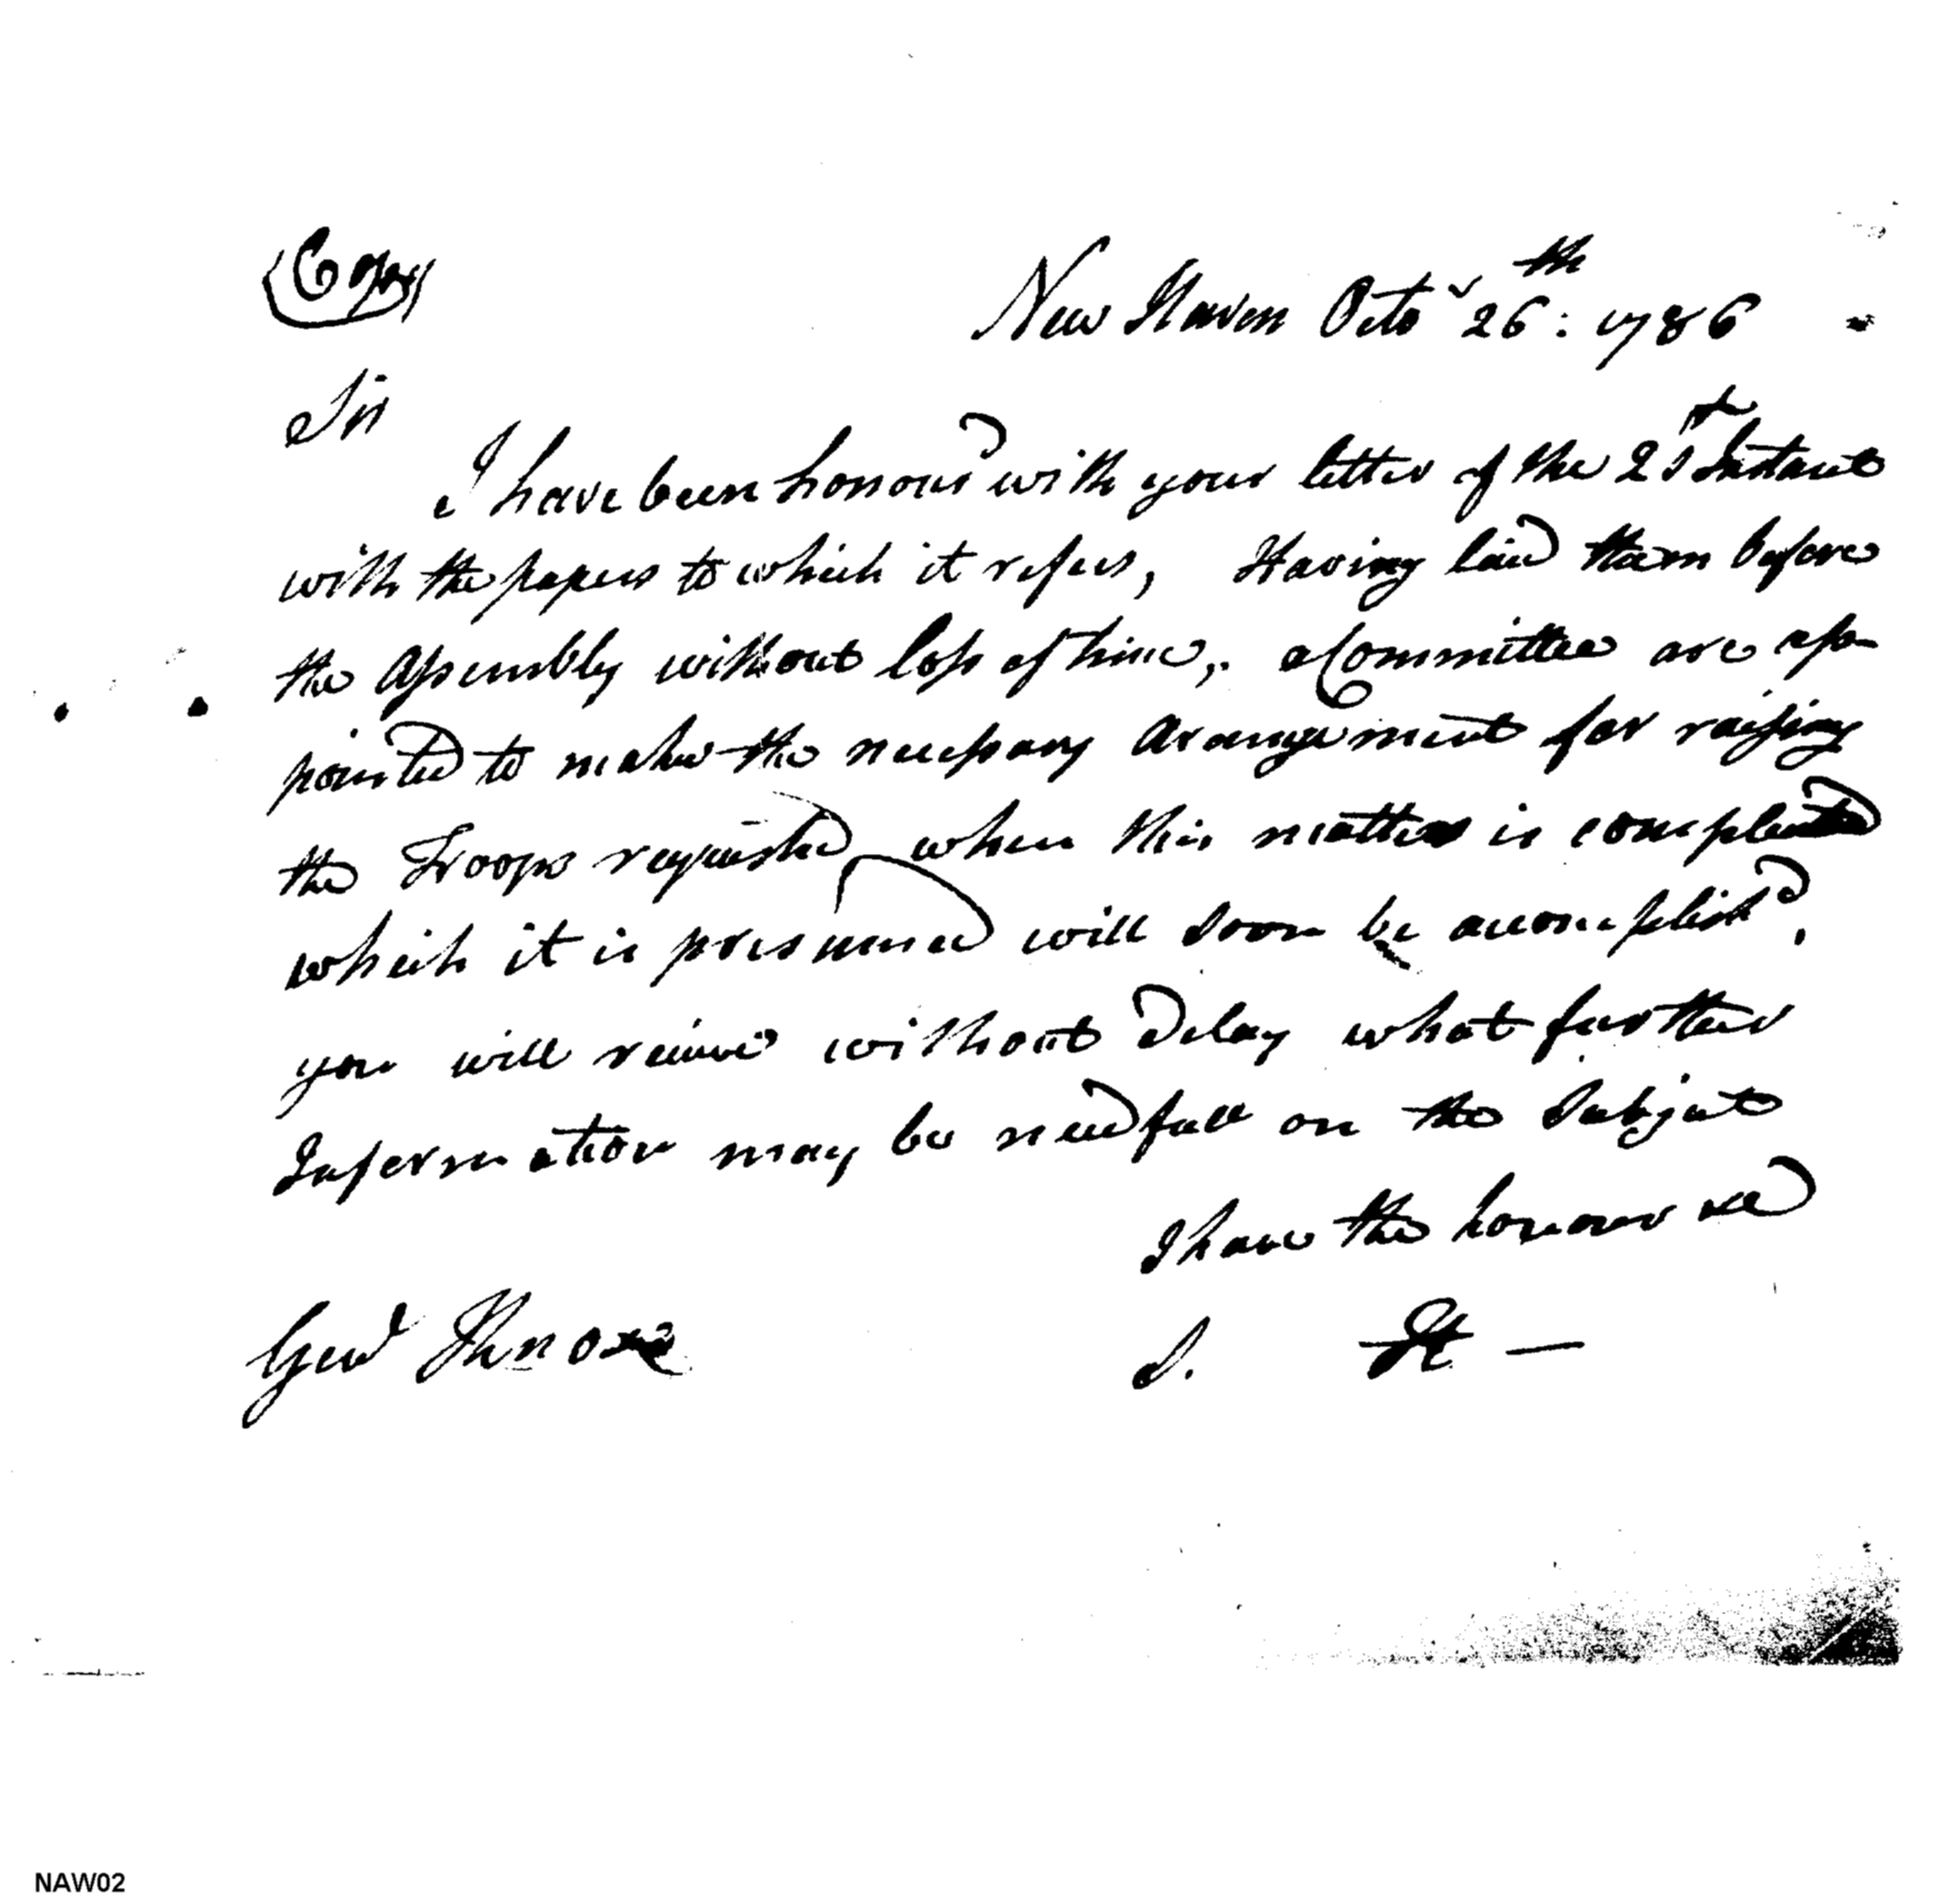 Copy
New Haven Octor 26th: 1786
Sir
I have been honourd with your letter of the 21st Instant
with the papers to which it refers, Having laid them before
the Assembly without loss of time, a Committee are ap
pointed to make the necessary Arangement for raising
the Troops requested, when this matter is compleated
which it is presumed will soon be accomplishd,
you will receive without delay what further
Information may be needfull on the Subject
I have the honour &c
Genl Knox S. H—
NAW02